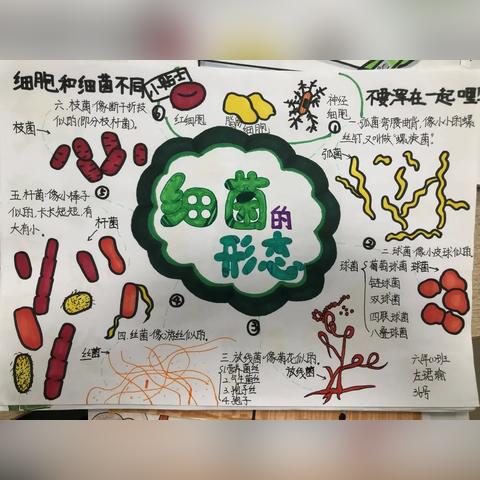 细胞和细菌不同
小贴士
不要浑在一起哩!
红细胞
脂肪细胞
神经
细胞
细菌的
形态
①
一.弧菌弯腰曲背,像小小的螺
丝钉,又叫做“螺旋菌”
弧菌
②
二.球菌像小皮球似的.
球菌
葡萄球菌
链球菌
双球菌
四联球菌
八叠球菌
球菌
③
三.放线菌像菊花似的.
1.营养菌丝
2.气生菌丝
3.孢子丝
4.孢子
放线菌
④
四.丝菌像游丝似的.
丝菌
⑤
五.杆菌像小棒子
似的,长长短短,有
大有小。
杆菌
⑥
六.枝菌像断干折枝
似的(即分枝杆菌).
枝菌
左珺瑜
36号